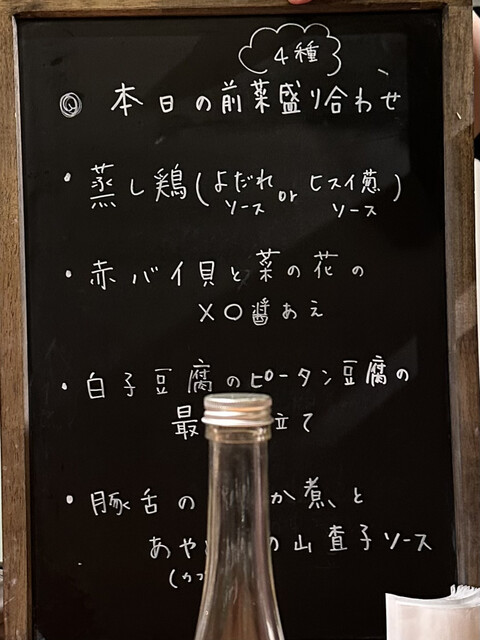 4種
◎ 本日の前菜盛り合わせ
・蒸し鶏(よだれソース or ヒスイ葱ソース)
・赤バイ貝と菜の花の
XO醤あえ
・白子豆腐のピータン豆腐の
最 立て
・豚舌の か煮、と
あや の山査子ソース